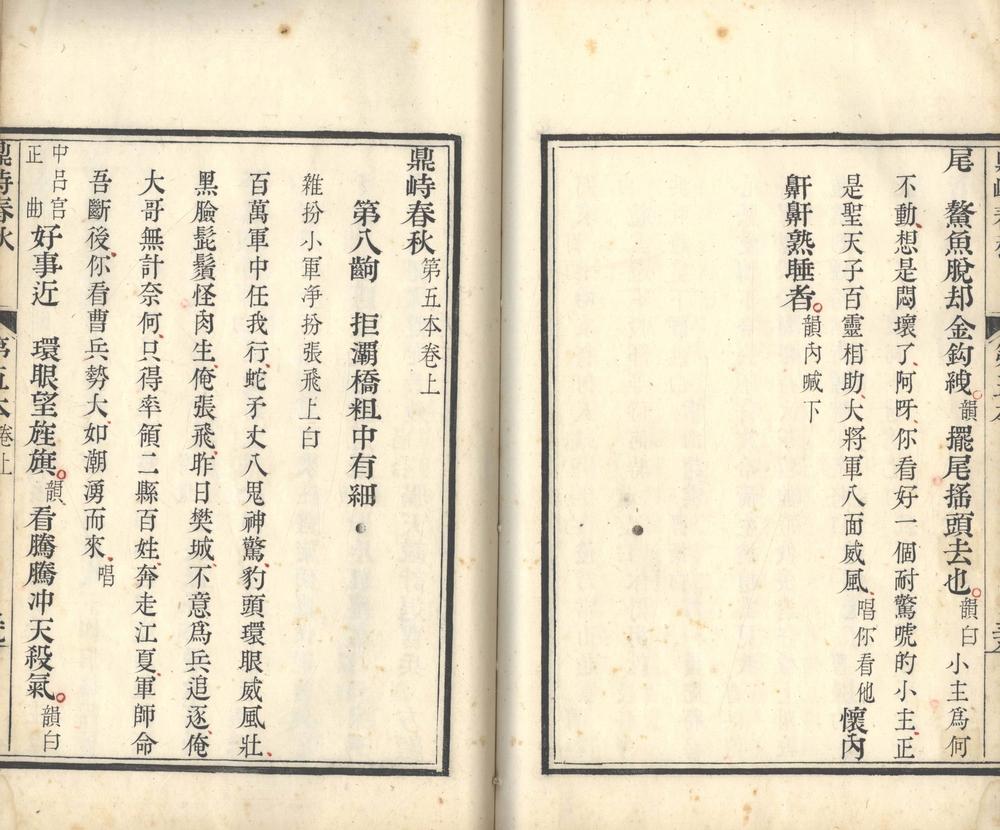 尾　鰲魚脫却金鈎線韻擺尾搖頭去也韻白小主爲何
不動想是悶壞了阿呀你看好一個耐驚唬的小主正
是聖天子百靈相助大將軍八面威風唱你看他懷內
鼾鼾熟睡者韻內喊下
鼎峙春秋第五本卷上
第八齣　拒灞橋粗中有細
雜扮小軍淨扮張飛上白
百萬軍中任我行蛇矛丈八鬼神驚豹頭環眼威風壯
黑臉髭鬚怪肉生俺張飛昨日樊城不意爲兵追逐俺
大哥無計奈何只得率領二縣百姓奔走江夏軍師命
吾斷後你看曹兵勢大如潮湧而來唱
中呂宮正曲好事近　環眼望旌旗韻看騰騰冲天殺氣韻白
鼎峙春秋　第五本卷上